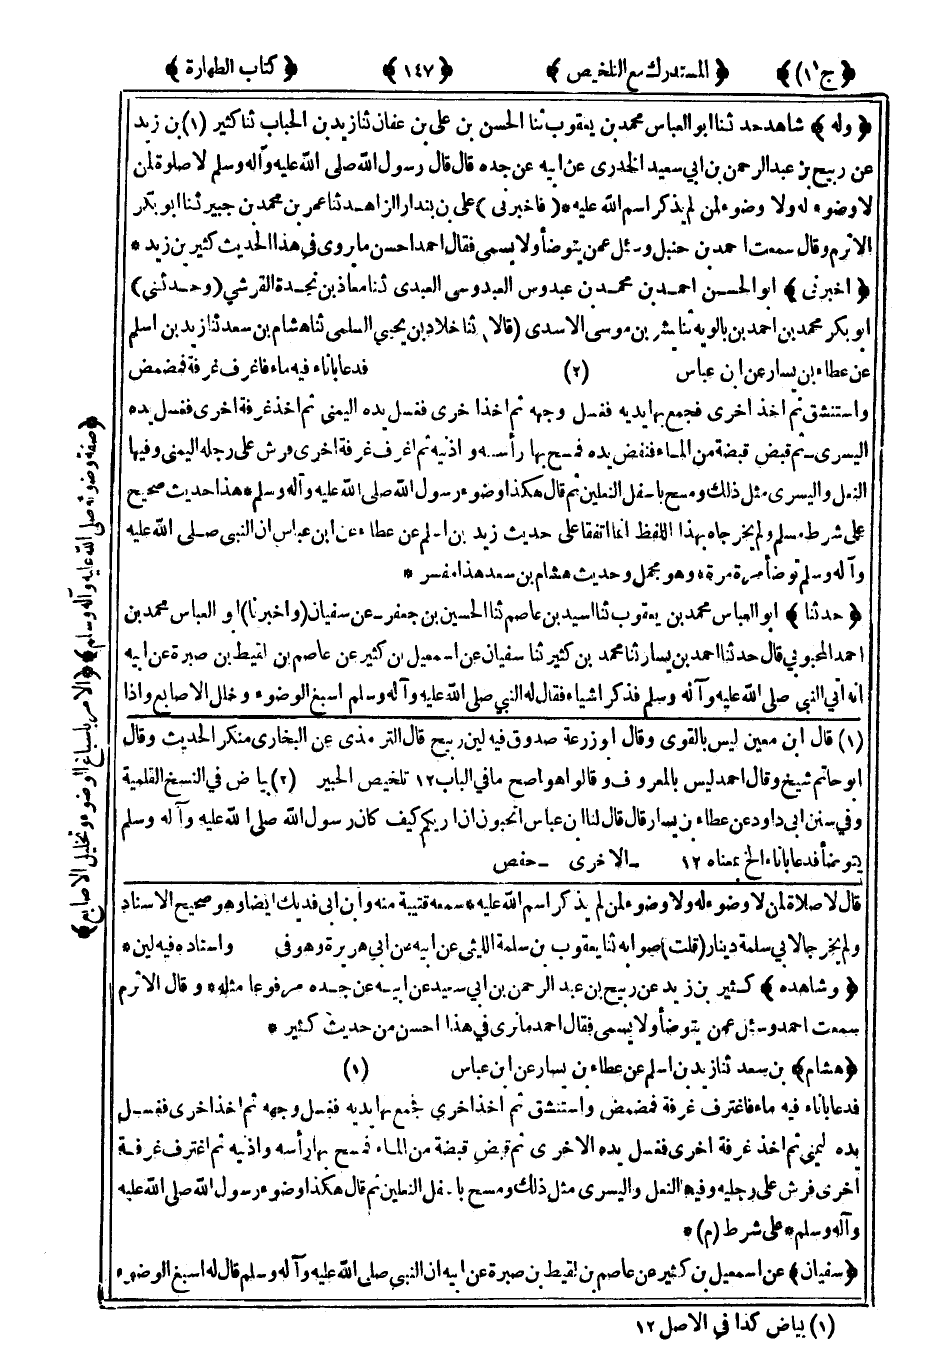 ﴿ج ١﴾ ﴿المستدرك مع التلخيص﴾ ﴿١٤٧﴾ ﴿كتاب الطهارة﴾
﴿وله﴾ شاهد حدثنا ابو العباس محمد بن يعقوب ثنا الحسن بن علي بن عفان ثنا زيد بن الحباب ثنا كثير (١) بن زيد
عن ربيح بن عبد الرحمن بن ابي سعيد الخدرى عن ابيه عن جده قال قال رسول الله صلى الله عليه وآله وسلم لا صلوة لمن
لا وضوء له ولا وضوء لمن لم يذكر اسم الله عليه * (فاخبرنى) على بن بندار الزاهد ثنا عمر بن محمد بن جبير ثنا ابو بكر
الاثرم وقال سمعت احمد بن حنبل وسئل عمن يتوضأ ولا يسمى فقال احمد احسن ما يروى في هذا الحديث كثير بن زيد *
﴿اخبرنى﴾ ابو الحسن احمد بن محمد بن عبدوس العبدوسى العبدى ثنا معاذ بن نجدة القرشي (وحدثني)
ابو بكر محمد بن احمد بن بالويه ثنا بشر بن موسى الاسدى (قالا) ثنا خلاد بن يحيى السلمى ثنا هشام بن سعد ثنا زيد بن اسلم
عن عطاء بن يسار عن ابن عباس (٢) فدعا باناء فيه ماء فاغرف غرفة فمضمض
واستنشق ثم اخذ اخرى فجمع بها يديه فغسل وجهه ثم اخذ اخرى فغسل يده اليمني ثم اخذ غرفة اخرى فغسل يده
اليسرى ثم قبض قبضة من الماء فنفض يده فمسح بها رأسه و اذنيه ثم اغرف غرفة اخرى فرش على رجله اليمنى وفيها
النعل واليسرى مثل ذلك ومسح باسفل النعلين ثم قال هكذا وضوء رسول الله صلى الله عليه وآله وسلم * هذا حديث صحيح
على شرط مسلم ولم يخرجاه بهذا اللفظ انما اتفقا على حديث زيد بن اسلم عن عطاء عن ابن عباس ان النبي صلى الله عليه
وآله وسلم توضأ مرة مرة وهو مجمل وحديث هشام بن سعد هذا مفسر *
﴿حدثنا﴾ ابو العباس محمد بن يعقوب ثنا اسيد بن عاصم ثنا الحسين بن جعفر عن سفيان (واخبرنا) ابو العباس محمد بن
احمد المحبوبي قال حدثنا احمد بن يسار ثنا محمد بن كثير ثنا سفيان عن اسمعيل بن كثير عن عاصم بن لقيط بن صبرة عن ابيه
انه اتى النبي صلى الله عليه وآله وسلم فذكر اشياء فقال له النبي صلى الله عليه وآله وسلم اسبغ الوضوء وخلل الاصابع واذا
﴿صفة وضوئه صلى الله عليه وآله وسلم﴾ ﴿الامر باسباغ الوضوء وتخليل الاصابع﴾
(١) قال ابن معين ليس بالقوى وقال ابو زرعة صدوق فيه لين ربيح قال الترمذى عن البخارى منكر الحديث وقال
ابو حاتم شيخ وقال احمد ليس بالمعروف وقالوا هو اصح ما في الباب ١٢ تلخيص الحبير (٢) بياض في النسخ القلمية
وفي سنن ابي داود عن عطاء بن يسار قال قال لنا ابن عباس اتحبون ان اريكم كيف كان رسول الله صلى الله عليه وآله وسلم
يتوضأ فدعا باناء الخ بمعناه ١٢ ـ الاخرى ـ حفص
قال لا صلاة لمن لا وضوء له ولا وضوء لمن لم يذكر اسم الله عليه * سمعه قتيبة منه وابن ابى فديك ايضا وهو صحيح الاسناد
ولم يخرجا لابي سلمة دينار (قلت) صوابه ثنا يعقوب بن سلمة الليثى عن ابيه عن ابي هريرة وهو في واسناده فيه لين *
﴿وشاهده﴾ كثير بن زيد عن ربيح بن عبد الرحمن بن ابي سعيد عن ابيه عن جده مرفوعا مثله * وقال الاثرم
سمعت احمد وسئل عمن يتوضأ ولا يسمى فقال احمد ما نرى في هذا احسن من حديث كثير *
﴿هشام﴾ بن سعد ثنا زيد بن اسلم عن عطاء بن يسار عن ابن عباس (١)
فدعا باناء فيه ماء فاغترف غرفة فمضمض واستنشق ثم اخذ اخرى فجمع بها يديه فغسل وجهه ثم اخذ اخرى فغسل
يده ليمنى ثم اخذ غرفة اخرى فغسل يده الاخرى ثم قبض قبضة من الماء فمسح بها رأسه واذنيه ثم اغترف غرفة
اخرى فرش على رجليه وفيها النعل واليسرى مثل ذلك ومسح باسفل النعلين ثم قال هكذا وضوء رسول الله صلى الله عليه
وآله وسلم * على شرط (م) *
﴿سفيان﴾ عن اسمعيل بن كثير عن عاصم بن لقيط بن صبرة عن ابيه ان النبي صلى الله عليه وآله وسلم قال له اسبغ الوضوء
(١) بياض كذا في الاصل ١٢